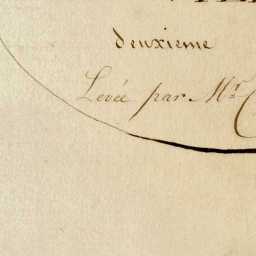 deuxieme
Levée par Mr